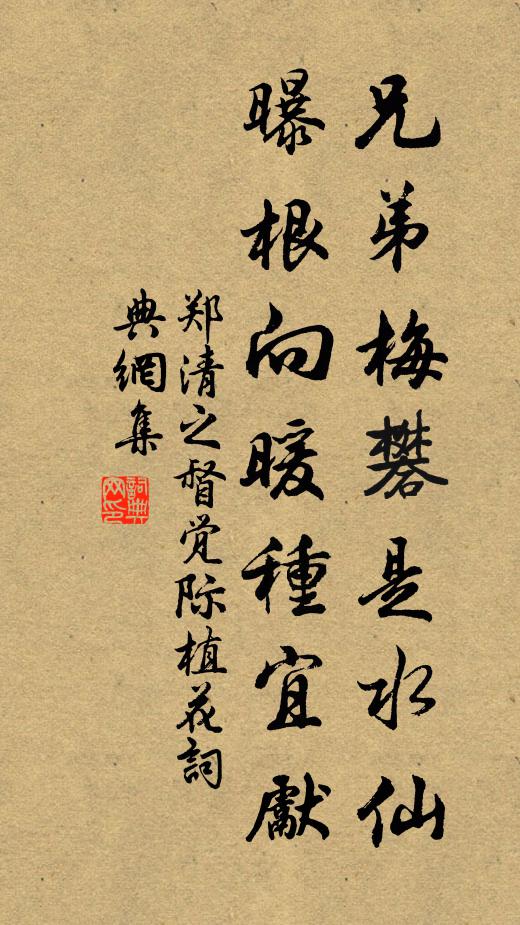 兄弟梅礬是水仙
曝根向暖種宜獻
郑清之督觉际植花詞
典網集
詞典
网印